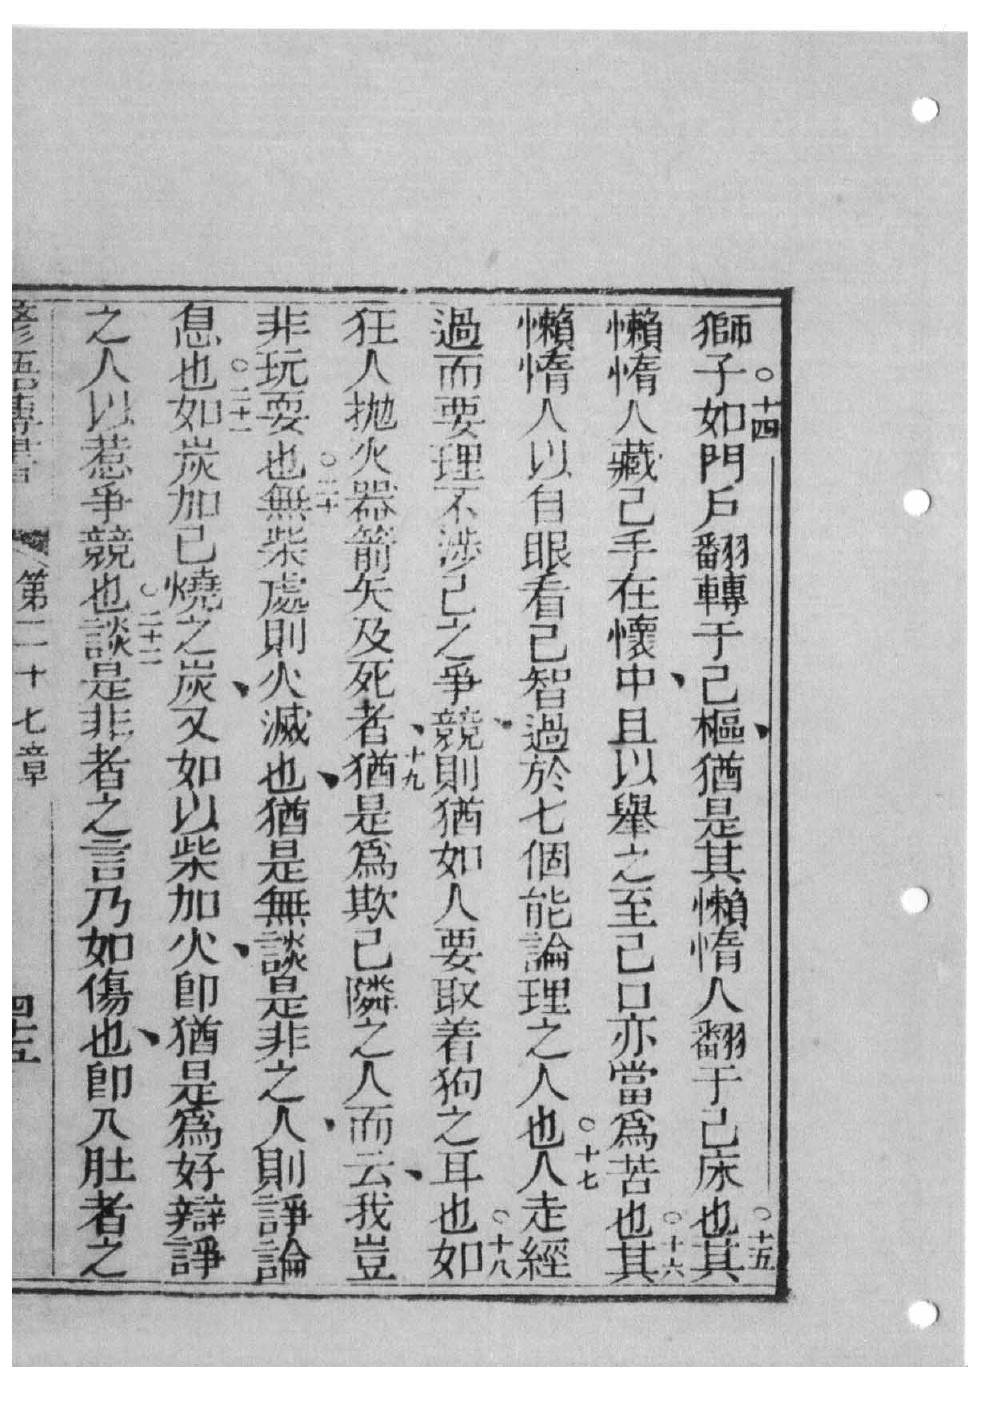 獅子○十四如門戶翻轉于己樞、猶是其懶惰人翻于己床也○十五其
懶惰人藏己手在懷中、且以舉之至己口亦當爲苦也○十六其
懶惰人以自眼看己智過於七個能論理之人也○十七人走經
過而要理不涉己之爭競、則猶如人要取着狗之耳也○十八如
狂人拋火器箭矢及死者、十九猶是爲欺己隣之人而云、我豈
非玩耍也○二十無柴處則火滅也、猶是無談是非之人、則諍論
息也○二十一如炭加己燒之炭、又如以柴加火、卽猶是爲好辯諍
之人以惹爭競也○二十二談是非者之言乃如傷也、卽入肚者之
第二十七章